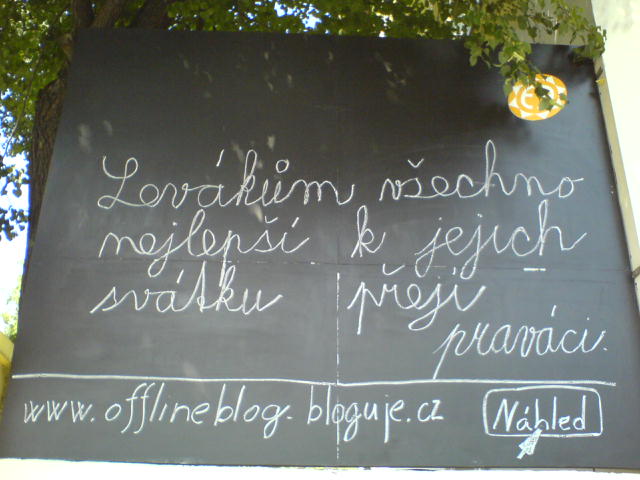 Levákům všechno
nejlepší k jejich
svátku přejí
praváci.
www.offlineblog.bloguje.cz
Náhled